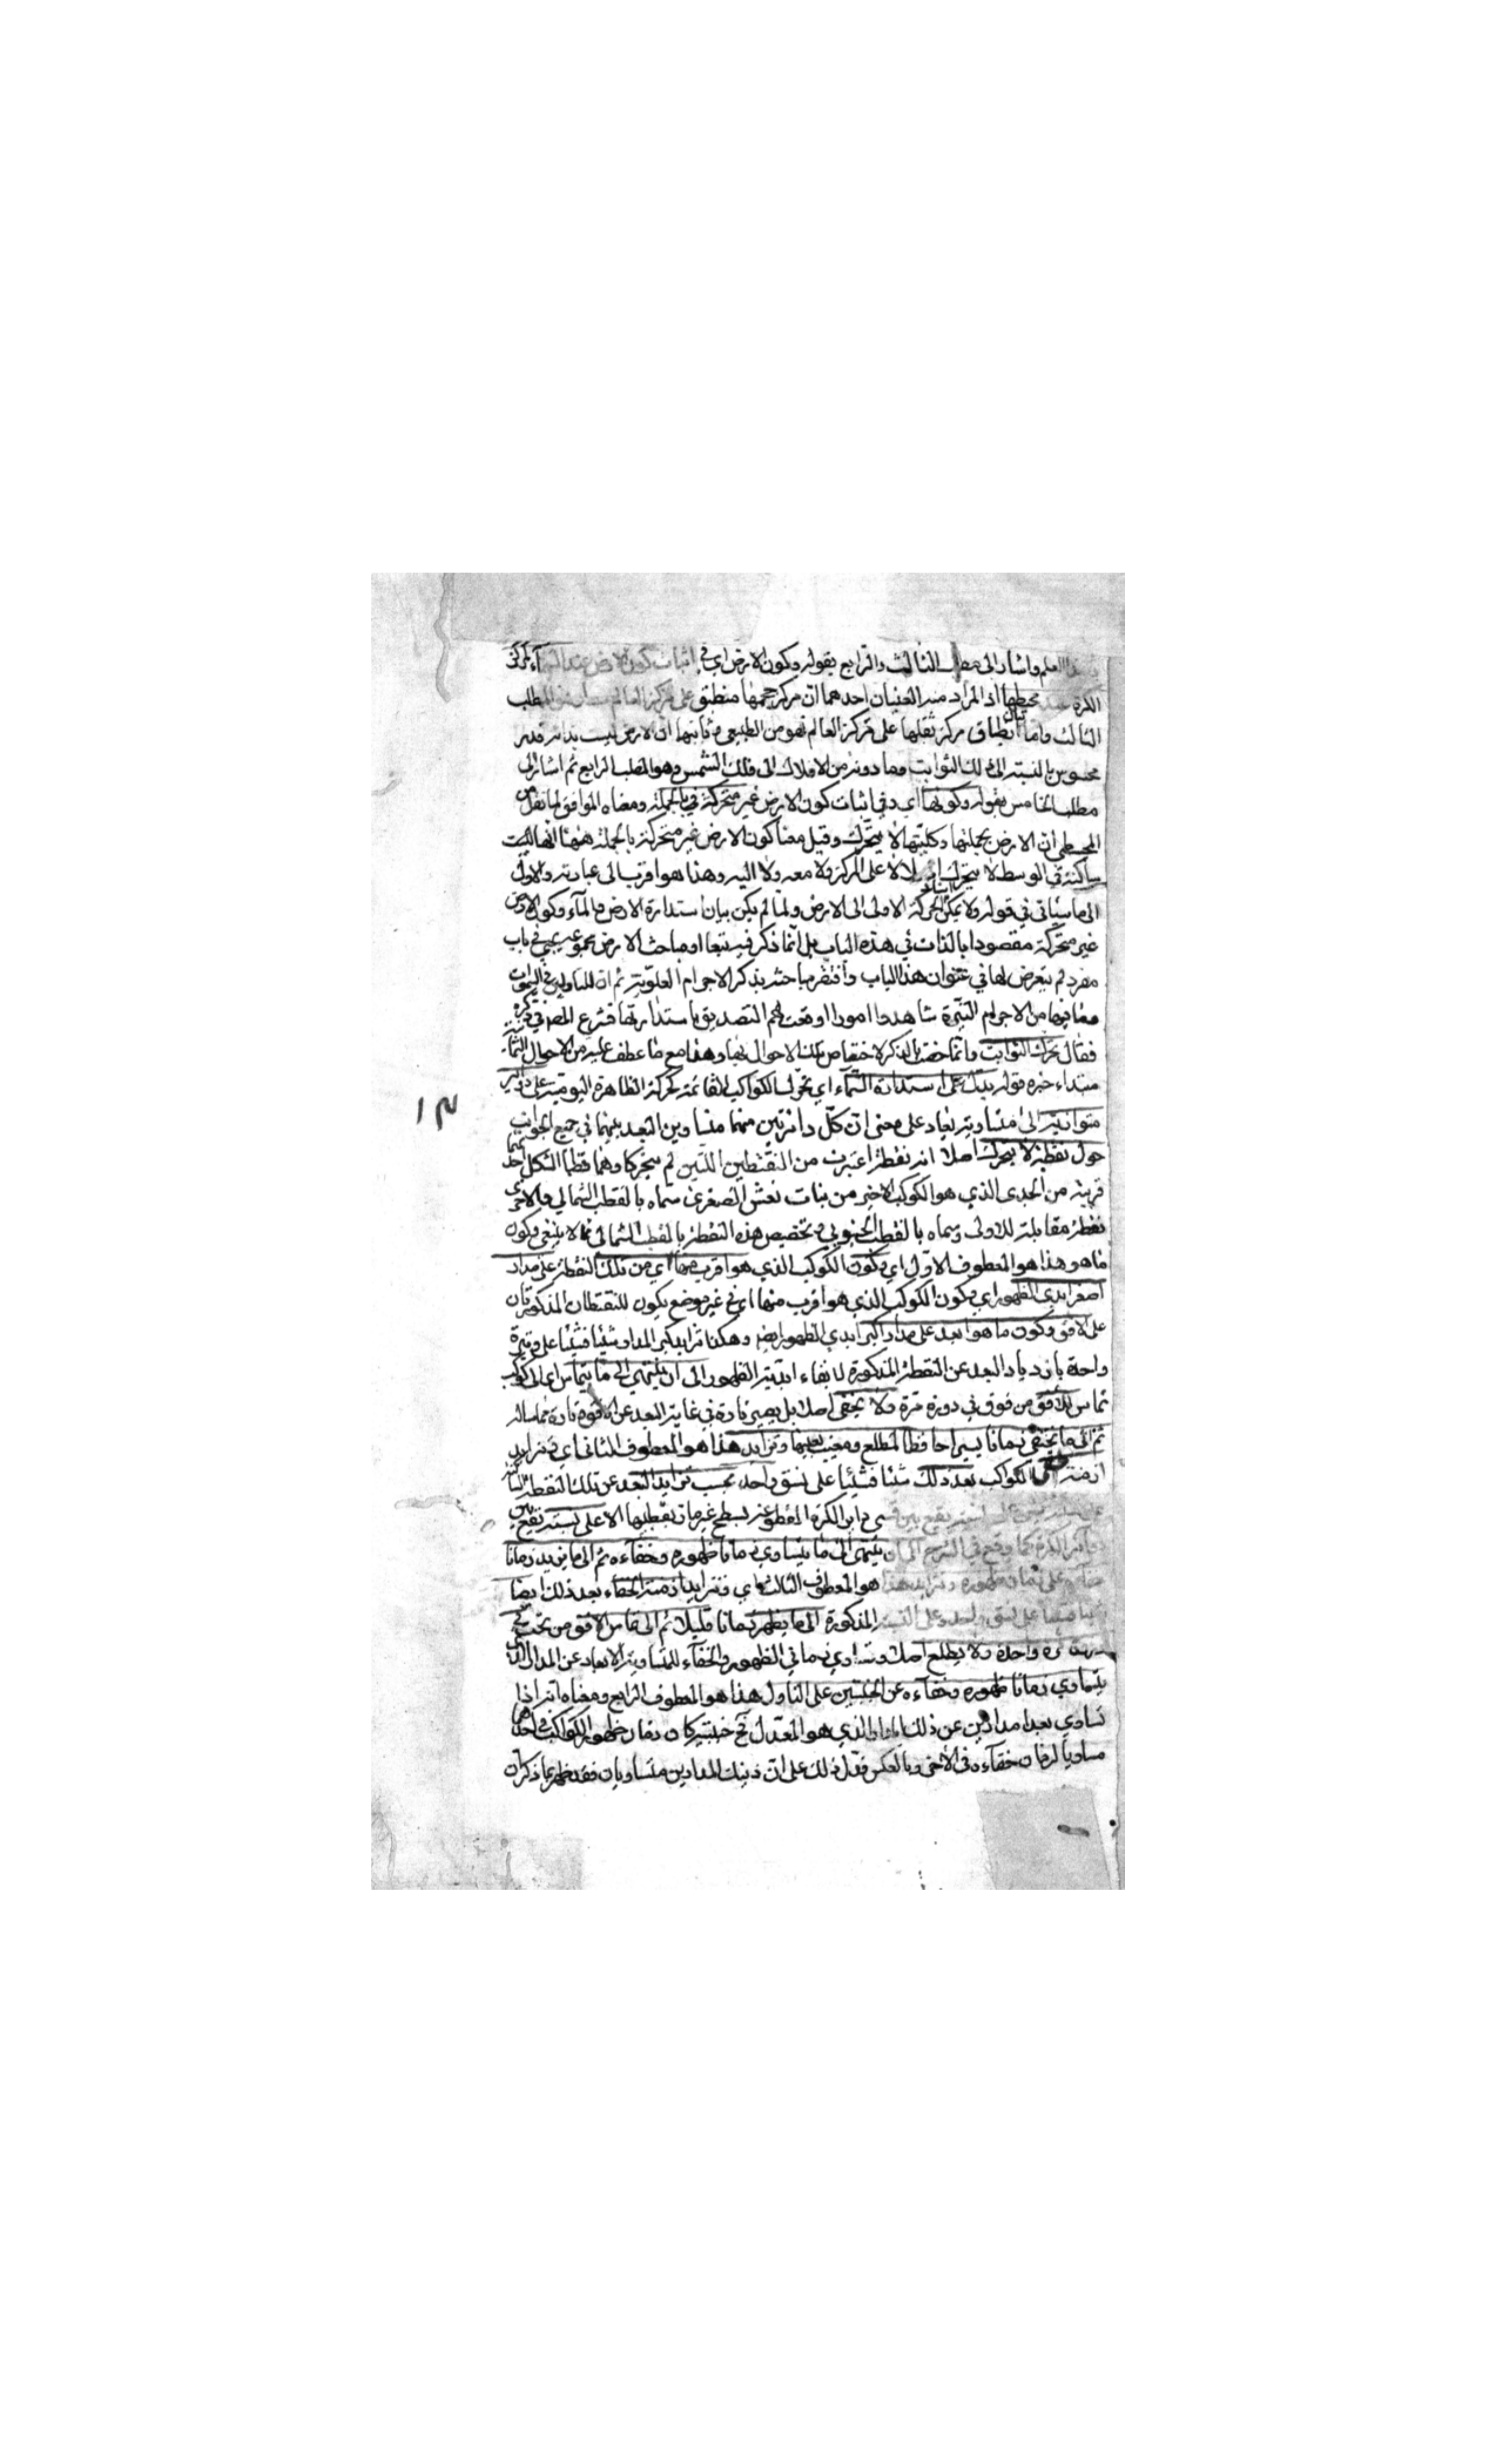 العلم واشار الى مطلب الثالث والرابع بقوله وكون الارض اي في اثبات كون الارض عند السماء كمركز
الكرة عند محيطها اذ المراد منه المعنيان احدهما ان مركز حجمها منطبق على مركز العالم المطلب
الثالث واما انطباق مركز ثقلها على مركز العالم فهو من الطبيعي وثانيها ان الارض ليست بذات قدر
محسوس بالنسبة الى فلك الثوابت وما دونه من الافلاك الى فلك الشمس وهو المطلب الرابع ثم اشار الى
مطلب الخامس بقوله وكونها اي وفي اثبات كون الارض غير متحركة في بالجملة ومعناه الموافق لما نقل من
المجسطي ان الارض بجملتها وكليتها لا يتحرك وقيل معنا كون الارض غير متحركة بالجملة ههنا انها ليست
ساكنة في الوسط لا يتحرك اصلا لا على المركز ولا معه ولا اليه وهذا هو اقرب الى عبارته والاول
الى ما سيأتي في قوله ولا يمكن اسناد الحركة الاولى الى الارض ولما لم يكن بيان استدارة الارض والماء وكون الارض
غير متحركة مقصودا بالذات في هذه الباب بل انما ذكر فيه تبعا او مباحث الارض مجموعة يجيء في باب
مفرد لم يتعرض لها في عنوان هذا الباب وافتقر مباحثه بذكر الاجرام العلوية ثم ان للناظرين في السموات
وما فيها من الاجرام النيرة شاهدوا امورا اوقعت لهم التصديق باستدارتها فشرع المصـ في ذكره
فقال تحرك الثوابت وانما خصت بالذكر لاختصاص تلك الاحوال بها وهذا مع ما عطف عليه من الاحوال الثمانية
مبتداء خبره قوله يدل على استدارة السماء اي تحرك الكواكب القائمة كحركة الظاهرة اليومية على دواير
متوازية الى متساوية بعاد على معنى ان كل دائرتين منها متساوين البعد بينهما في جميع الجوانب
حول نقطة لا يتحرك اصلا اذ نقطة اعتبرت من النقطتين اللتين لم يتحركا وهما قطبا الشكل احديهما
قريبة من الجدى الذي هو الكوكب الاخير من بنات نعش الصغرى سماه بالقطب الشمالي والاخرى
نقطة مقابلة للاولى وسماه بالقطب الجنوبي وتخصيص هذه النقطة بالقطب الشمالي مما لا ينبغي وكون
ما هو هذا هو المعطوف الاول اي وكون الكوكب الذي هو اقرب منها اي من تلك النقطة على مدار
اصغر ابدي الظهور اي وكون الكوكب الذي هو اقرب منها اي في غير موضع يكون للنقطتان المذكورتان
على الافق وكون ما هو ابعد على مدار اكبر ابدي الظهور ايضا وهكذا تزايد كبر المدار شيئا فشيئا على وتيرة
واحدة بازدياد البعد عن النقطة المذكورة لا بقاء ابدية الظهور الى ان ينتهي الى ما يتماس اي الى كوكب
تماس للافق من فوق في دورة مرة ولا يختفي اصلا بل يصير تارة في غاية البعد عن الافق وتارة مماسا له
ثم الى ما يختفي زمانا يسيرا حافظا لمطلع ومغيب بعينها وتزايد هذا هو المعطوف الثاني اي وتزايد
ازمنة الكواكب بعد ذلك شيئا فشيئا على نسق واحد بحسب تزايد البعد عن تلك النقطة
يقع بين قسمي دواير الكرة المقطوعة بسطح غير مار بقطبيها الا على نسبة تقع بين
دواير الكرة كما وقع في الشرح الى ان ينتهي الى ما يتساوي زمانا ظهوره وخفاءه ثم الى ما يزيد زمانا
خفاءه على زمان ظهوره وتزايد هذا هو المعطوف الثالث اي وتزايد ازمنة الخفاء بعد ذلك ايضا
شيئا فشيئا على نسق واحد وعلى النسبة المذكورة الى ما يظهر زمانا قليلا ثم الى مماس الافق من تحت في
دورة مرة واحدة ولا يطلع اصلا وتساوي زماني الظهور والخفاء للمتساوية الابعاد عن المدار الذي
يتساوي زمانا ظهوره وخفاءه عن الجنبتين على التناول هذا هو المعطوف الرابع ومعناه انه اذا
تساوي بعدا مدارين عن ذلك المدار الذي هو المعدل في جنبتيه كان زمان ظهور الكواكب في احدهما
مساويا لزمان خفاءه في الاخر وبالعكس فدل ذلك على ان ذينك المدارين متساويان فقد ظهر بما ذكر ان
١٣